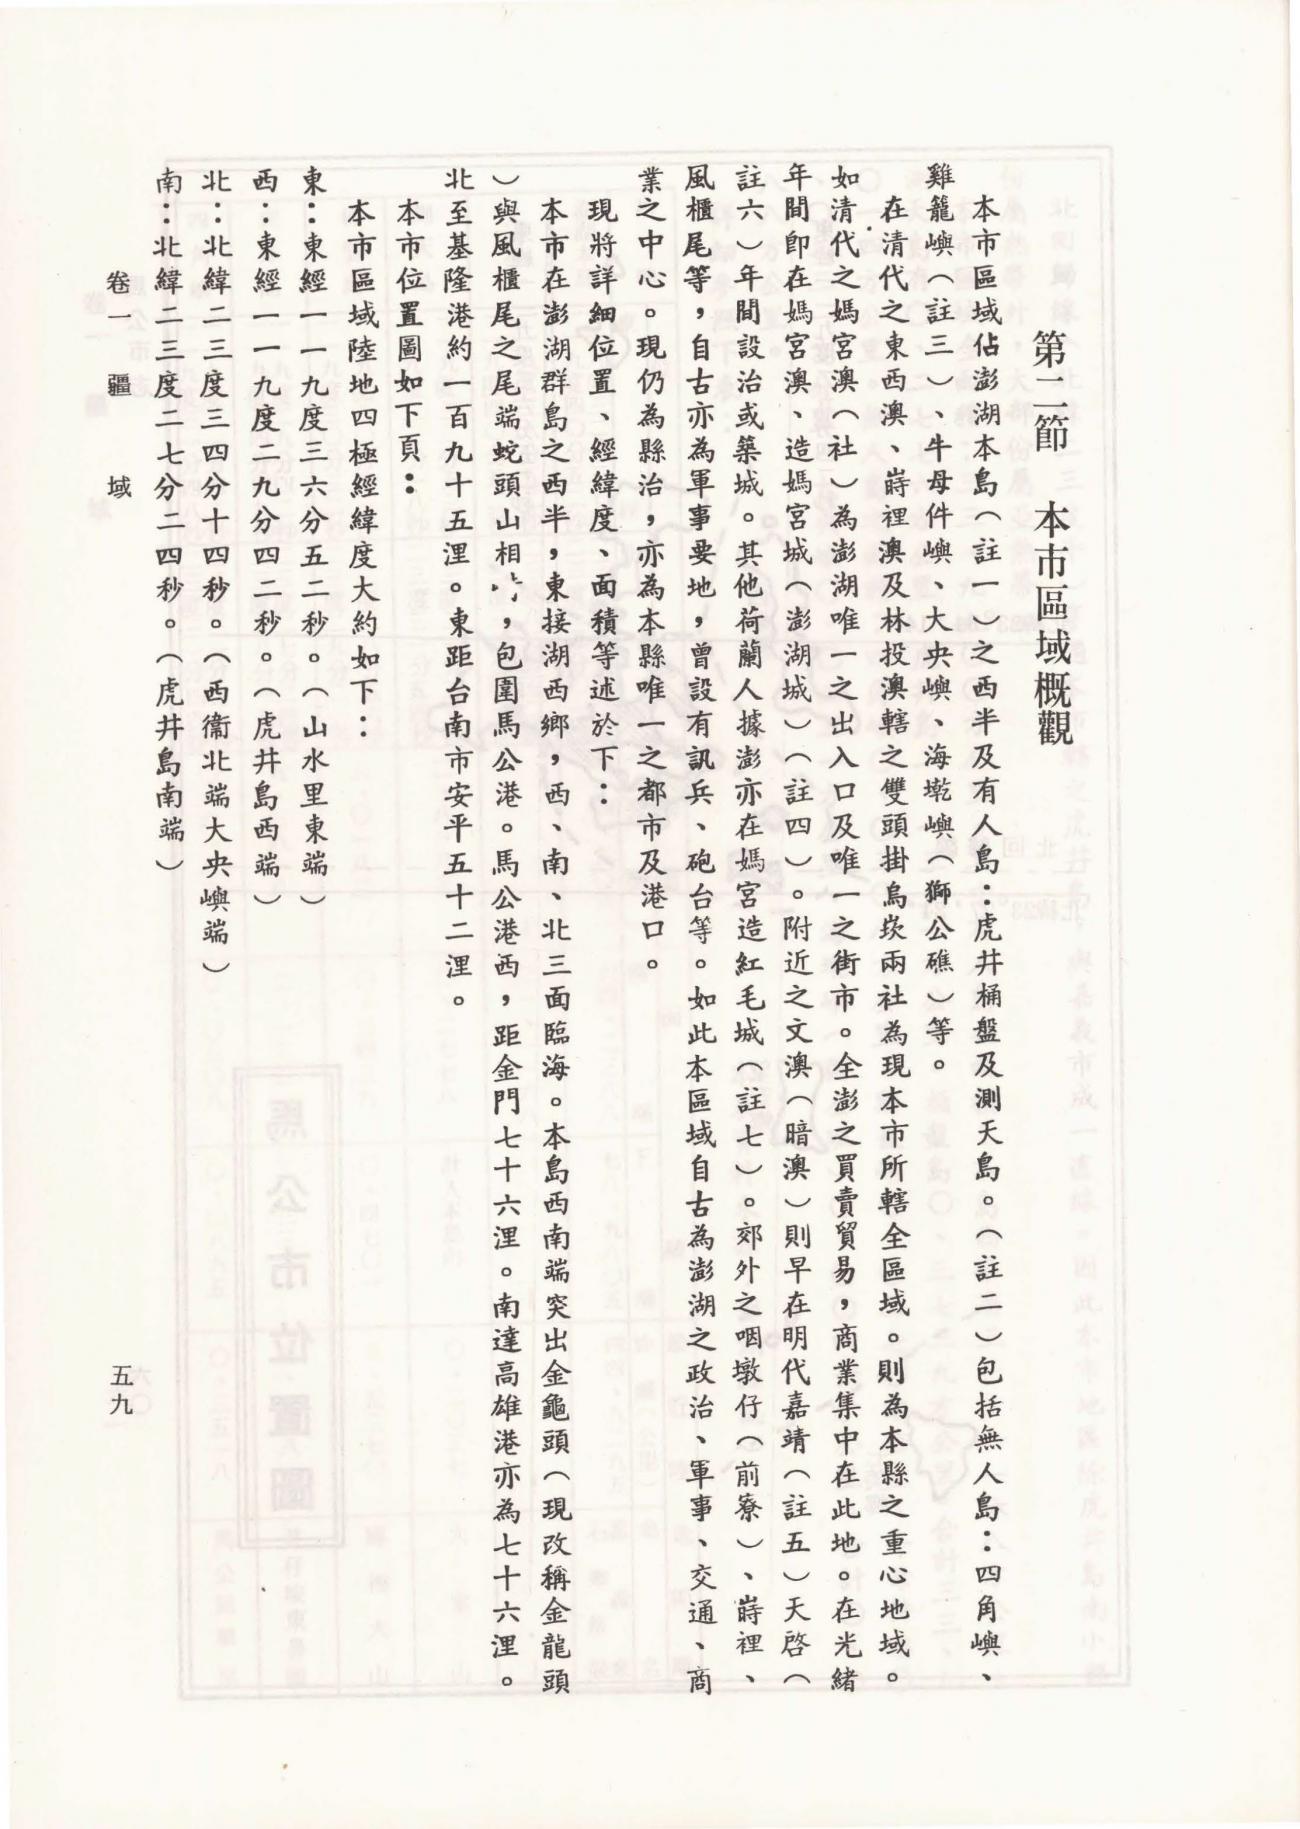 第二節　本市區域概觀
本市區域佔澎湖本島（註一）之西半及有人島：虎井桶盤及測天島。（註二）包括無人島：四角嶼、
雞籠嶼（註三）、牛母件嶼、大央嶼、海墘嶼（獅公礁）等。
在清代之東西澳、嵵裡澳及林投澳轄之雙頭掛烏崁兩社為現本市所轄全區域。則為本縣之重心地域。
如清代之媽宮澳（社）為澎湖唯一之出入口及唯一之街市。全澎之買賣貿易，商業集中在此地。在光緒
年間卽在媽宮澳、造媽宮城（澎湖城）（註四）。附近之文澳（暗澳）則早在明代嘉靖（註五）天啓（
註六）年間設治或築城。其他荷蘭人據澎亦在媽宮造紅毛城（註七）。郊外之咽墩仔（前寮）、嵵裡、
風櫃尾等，自古亦為軍事要地，曾設有訊兵、砲台等。如此本區域自古為澎湖之政治、軍事、交通、商
業之中心。現仍為縣治，亦為本縣唯一之都市及港口。
現將詳細位置、經緯度、面積等述於下：
本市在澎湖群島之西半，東接湖西鄉，西、南、北三面臨海。本島西南端突出金龜頭（現改稱金龍頭
）與風櫃尾之尾端蛇頭山相，包圍馬公港。馬公港西，距金門七十六浬。南達高雄港亦為七十六浬。
北至基隆港約一百九十五浬。東距台南市安平五十二浬。
本市位置圖如下頁：
本市區域陸地四極經緯度大約如下：
東：東經一一九度三六分五二秒。（山水里東端）
西：東經一一九度二九分四二秒。（虎井島西端）
北：北緯二三度三四分十四秒。（西衞北端大央嶼端）
南：北緯二三度二七分二四秒。（虎井島南端）
卷一　疆域
五九